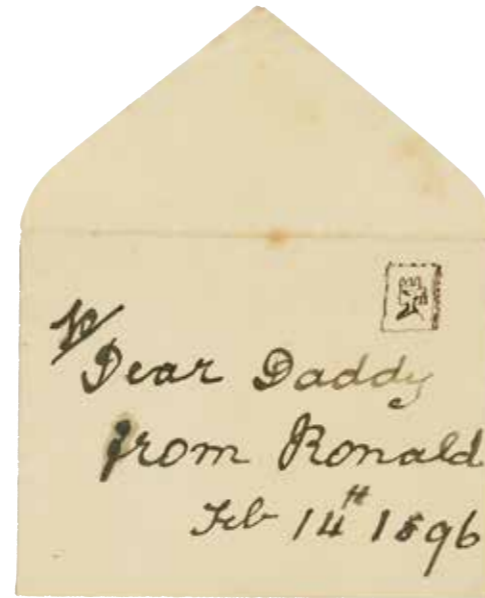 Dear Daddy
from Ronald
Feb 14th 1896